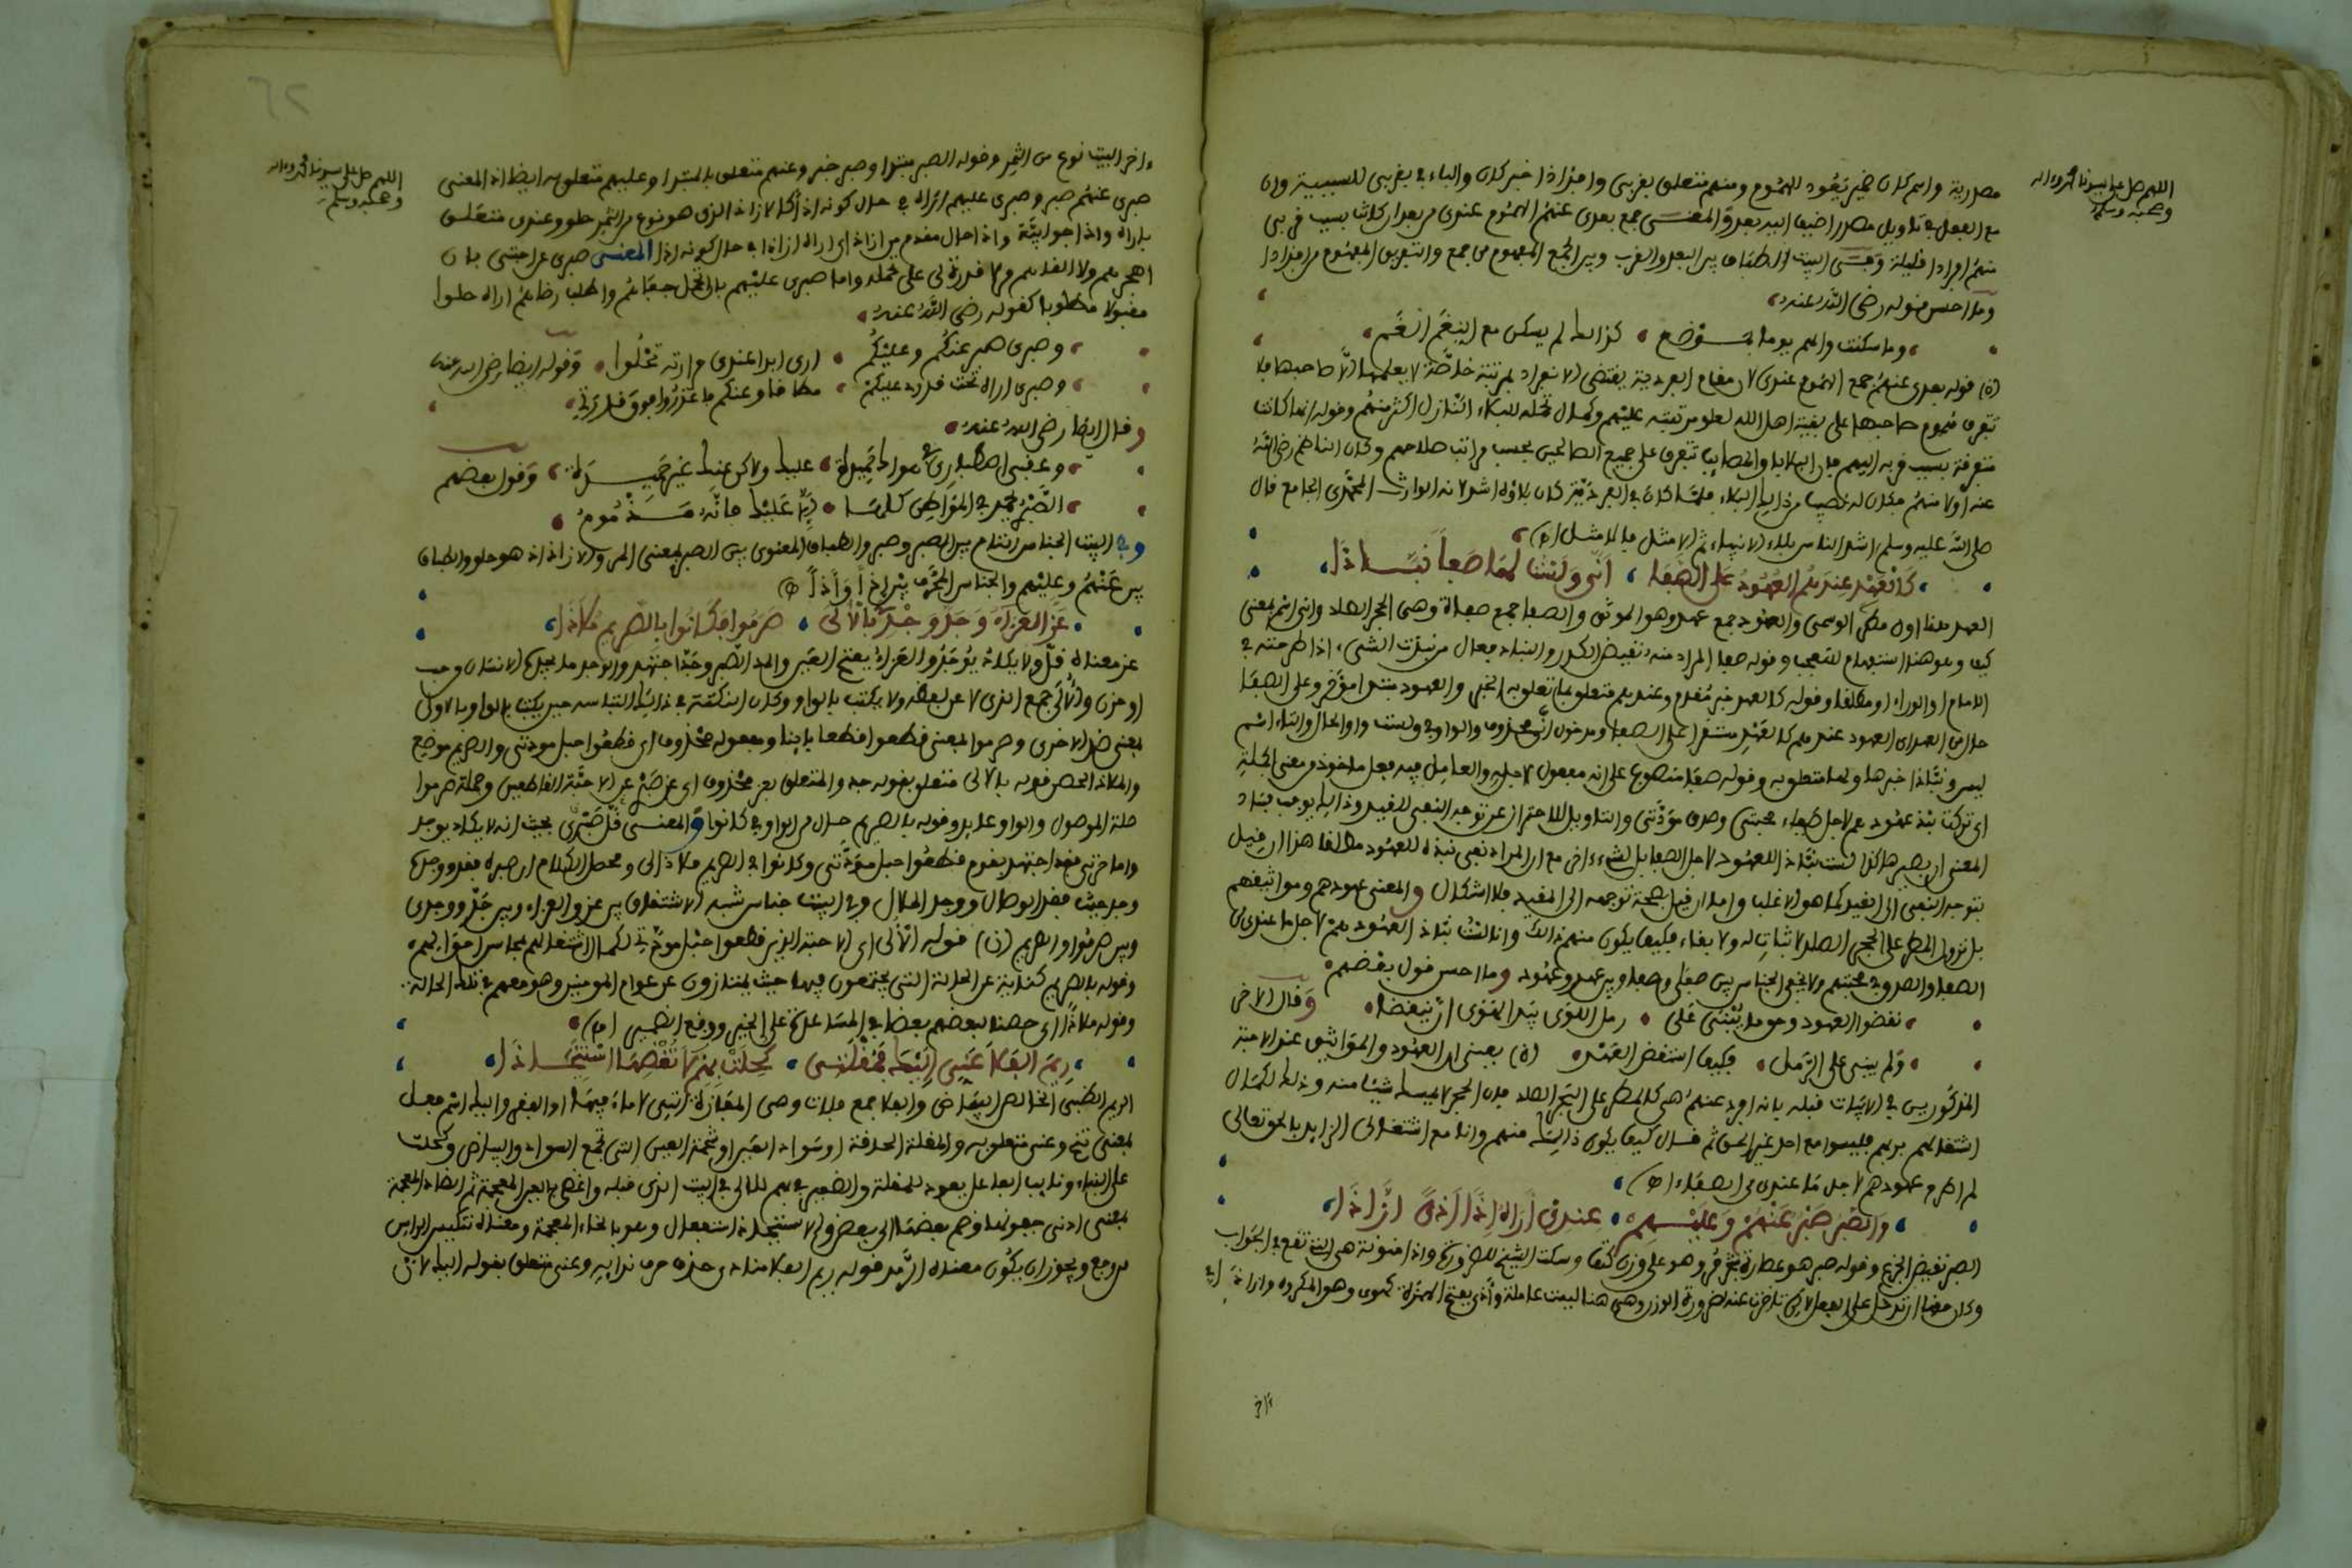 اللهم صل على سيدنا محمد وءاله
وصحبه وسلم
مصدرية واسم كان ضمير يعود للهموم ومنهم متعلق بقربي وافذاذا خبر كان والباء في بقربي للسببية وان
مع الفعل في تاويل مصدر اضيف اليه بعد والمعنى جمع بعدي عنهم الهموم عندي من بعد ان كانت بسبب قربي
منهم افرادا قليلة وفي البيت الطباق بين البعد والقرب وبين الجمع المفهوم من جمع والتفريق المفهوم من افذاذا
وما احسن قوله رضي الله عنه
وما سكنت والهم يوما بموضع كذلك لم يسكن مع النغم الغم
قوله بعدي عنهم جمع الهموم عندي لان مقام الفردية يقتضي الانفراد بمرتبة خاصة لا يعلمها الا صاحبها فلا
تفرق هموم صاحبها على بقية اهل الله لعلو مرتبته عليهم وكمال تحمله للبلاء النازل اكثر منهم وقوله انها كانت
متفرقة بسبب قربه اليهم فان البلايا والمصايب تتفرق على جميع الصالحين بحسب مراتب صلاحهم وكان الناظم رضي الله
عنه اولا منهم فكان له نصيب من ذلك البلاء فلما كان في الفردية كان بلاؤه اشد لانه الوارث المحمدي الجامع قال
صلى الله عليه وسلم اشد الناس بلاء الانبياء ثم الامثل فالامثل
كالعهد عندهم العهود على الصفا انى ولست لها صفا نباذا
العهد هنا اول مطر الوسمي والعهود جمع عهد وهو الموثق والصفا جمع صفاة وهي الحجر الصلد وانى اسم بمعنى
كيف وهو هنا استفهام للتعجب وقوله صفا المراد منه نقيض الكدر والنباذ فعال من نبذت الشيء اذا طرحته في
الامام او الوراء او مطلقا وقوله كالعهد خبر مقدم وعندهم متعلق بما تعلق به الخبر والعهود مبتدا مؤخر وعلى الصفا
حال من العهد اي العهود عندهم كالعهد مستقرا على الصفا ومدخول انى محذوف والواو في ولست واو الحال والتاء اسم
ليس ونباذا خبرها ولها متعلق به وقوله صفا منصوب على انه مفعول لاجله والعامل فيه فعل ماخوذ من معنى الجملة
اي تركت نبذ عهودهم لاجل صفاء محبتي وصدق مودتي والتاويل للاحتراز عن توجه النفي للقيد وذلك يوجب فساد
المعنى اذ يصير هكذا لست نباذا للعهود لاجل الصفا بل لشيء ءاخر مع ان المراد نفي نبذه للعهود مطلقا هذا ان قيل
بتوجه النفي الى القيد كما هو الاغلب واما ان قيل بصحة توجهه الى المقيد فلا اشكال والمعنى عهودهم ومواثيقهم
بل نزول المطر على الحجر الصلد لا ثبات له ولا بقاء فكيف يكون منهم ذلك وانا لست نباذا لعهودهم لاجل ما عندي من
الصفا والصدق في محبتهم ولا يخفى الجناس بين صفا وصفا وبين عهد وعهود وما احسن قول بعضهم
نقضوا العهود وحق ما يبنى على رمل اللوى بيد الهوى ان ينقضا وقال الاخر
ولم يبنى على الرمل فكيف انتقض العهد يعني ان العهود والمواثيق عند الاحبة
المذكورين في الابيات قبله بانه ابعد عنهم هي كالمطر على الحجر الصلد فان الحجر لا يمسك شيئا منه وذلك لكمال
اشتغالهم بربهم فليسوا مع احد غير الحق ثم قال كيف يكون ذلك منهم وانا مع اشتغالي الزايد بالحق تعالى
لم اطرح عهودهم لاجل ما عندي من الصفاء
والصبر صبر عنهم وعليهم عندي اراه اذا اذى ازاذا
الصبر نقيض الجزع وقوله صبر هو عصارة شجر مر وهو على وزن كتف وسكنت الشيخ للضرورة واذا منونة هي التي تقع في الجواب
وكان حقها ان تدخل على الفعل لكن تاخرت عنه لضرورة الوزن وهي هنا ليست عاملة واذى بفتح الهمزة كهوى وهو المكروه وازاذا في
ءاخر
اللهم صل على سيدنا محمد وءاله
وصحبه وسلم
ءاخر البيت نوع من الثمر وقوله الصبر مبتدا وصبر خبر وعنهم متعلق بالمبتدا وعليهم متعلق به ايضا اذ المعنى
صبري عنهم صبر وصبري عليهم اراه في حال كونه اذا كالازاذ الذي هو نوع من الثمر حلو وعندي متعلق
باراه واذا جوابية واذا حال مقدم من ازاذ اي اراه ازاذا في حال كونه اذا المعنى صبري عن احبتي بان
اهجرهم ولا القاهم مر لا قدرة لي على تحمله واما صبري عليهم بان اتحمل جفاهم واطلب رضاهم اراه حلوا
مقبولا مطلوبا كقوله رضي الله عنه
وصبري صبر عنكم وعليكم ارى ابدا عندي مرارته تحلوا وقوله ايضا رضي الله عنه
وصبري اراه تحت قدري عليكم مطاقا وعنكم فاعذروا فوق قدرتي
وقال ايضا رضي الله عنه
وعقبى اصطباري في هواك حميدة عليك ولاكن عنك غير حميدة وقول بعضهم
الصبر يحمد في المواطن كلها الا عليك فانه مذموم
وفي البيت الجناس التام بين الصبر وصبر والطباق المعنوي بين الصبر بمعنى المر والازاذ اذ هو حلو والطباق
بين عنهم وعليهم والجناس المحرف بين اذا واذا
عز العزاء وجد وجدي بالالى صرموا فكانوا بالصريم ملاذا
عز معناه قل ولا يكاد يوجد والعزاء بفتح العين والمد الصبر وجد اجتهد والوجد ما يجده الانسان من حب
او حزن والالى جمع الذي لا عن لفظه ولا يكتب بالواو وكان النكتة في ذلك التباسه حين يكتب بالواو بالاولى
بمعنى ضد الاخرى وصرموا بمعنى قطعوا قطعا باينا ومفعوله محذوف اي قطعوا حبل مودتي والصريم موضع
والملاذ الحصن قوله بالالى متعلق بقوله جد والمتعلق بعز محذوف اي عز صبري عن الاحبة القاطعين وجملة صرموا
صلة الموصول والواو عايد وقوله بالصريم حال من الواو في كانوا والمعنى قل صبري بحيث انه لا يكاد يوجد
واما حزني فقد اجتهد بقوم قطعوا حبل مودتي وكانوا في الصريم ملاذا لي ومحصل الكلام ان صبره فقد ووجده
وجد حيث فقد الوصال ووجد الهلال وفي البيت جناس شبه الاشتقاق بين عز والعزاء وبين جد ووجدي
وبين صرموا والصريم قوله الالى اي الاحبة الذين قطعوا حبل مودتي لكمال اشتغالهم بمحاسن احوالهم
وقوله بالصريم كناية عن الحالة التي يجتمعون فيها حيث يمتازون عن عوام المومنين وهو معهم في تلك الحالة
وقوله ملاذا اي حصنا لبعضهم بعضا في المساعدة على الخير ودفع الضير
ريم الفلا عني اليك فمقلتي كحلت بهم لا تغضها استيخاذا
الريم الظبي الخالص البياض والفلا جمع فلات وهي المفازة التي لا ماء فيها او القفر واليك اسم فعل
بمعنى تنح وعني متعلق به والمقلة الحدقة او سواد العين او شحمة العين التي تجمع السواد والبياض وكحلت
على البناء ونايب الفاعل يعود للمقلة والضمير في بهم للالى في البيت الذي قبله واغضى بالغين المعجمة ثم الضاد المعجمة
بمعنى ادنى جفونها وضم بعضها الى بعض والاستيخاذ استفعال وهو بالخاء المعجمة ومعناه تنكيس الراس
من وجع ويجوز ان يكون معناه الرمد قوله ريم الفلا منادى حذف حرف ندايه وعني متعلق بقوله اليك لانه